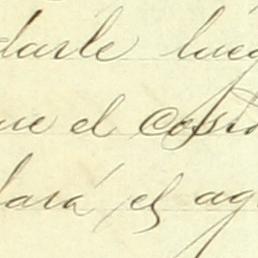 darle lueg
ue el costo
dará el ag